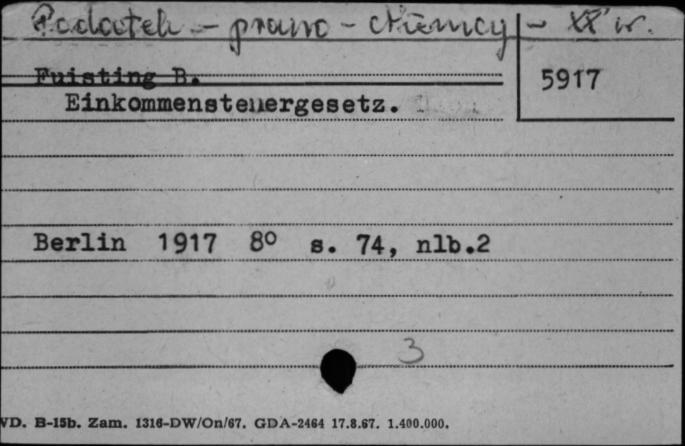 Podatek - prawo - Niemcy - XX w.
Fuisting B.
5917
Einkommensteuergesetz.
Berlin 1917 8° s. 74, nlb.2
3
VD. B-15b. Zam. 1316-DW/On/67. GDA-2464 17.8.67. 1.400.000.